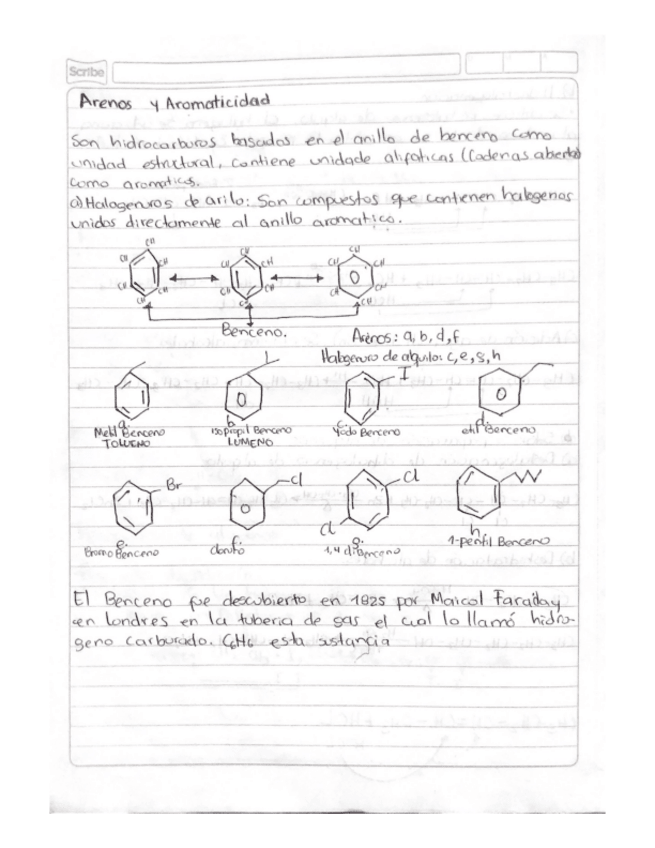 Scribe
Arenos y Aromaticidad
Son hidrocarburos basados en el anillo de benceno como
unidad estructural, contiene unidade alifaticas (Cadenas abierta)
como aromaticas.
a) Halogenuros de arilo: Son compuestos que contienen halogenos
unidos directamente al anillo aromatico.
CH CH CH CH CH CH
CH CH CH CH CH
CH CH CH CH CH CH
Benceno.
Arenos: a, b, d, f
Halogenuro de alquilo: c, e, g, h
I
a. b. c. d.
Metil Benceno isopropil Benceno yodo Benceno etil Benceno
TOLUENO LUMENO
Br Cl Cl
Cl
e. f. g. h
Bromo Benceno 1,4 di Benceno 1-pentil Benceno
El Benceno fue descubierto en 1825 por Maicol Faraday
en londres en la tuberia de gas el cual lo llamó hidro-
geno carburado. C6H6 esta sustancia